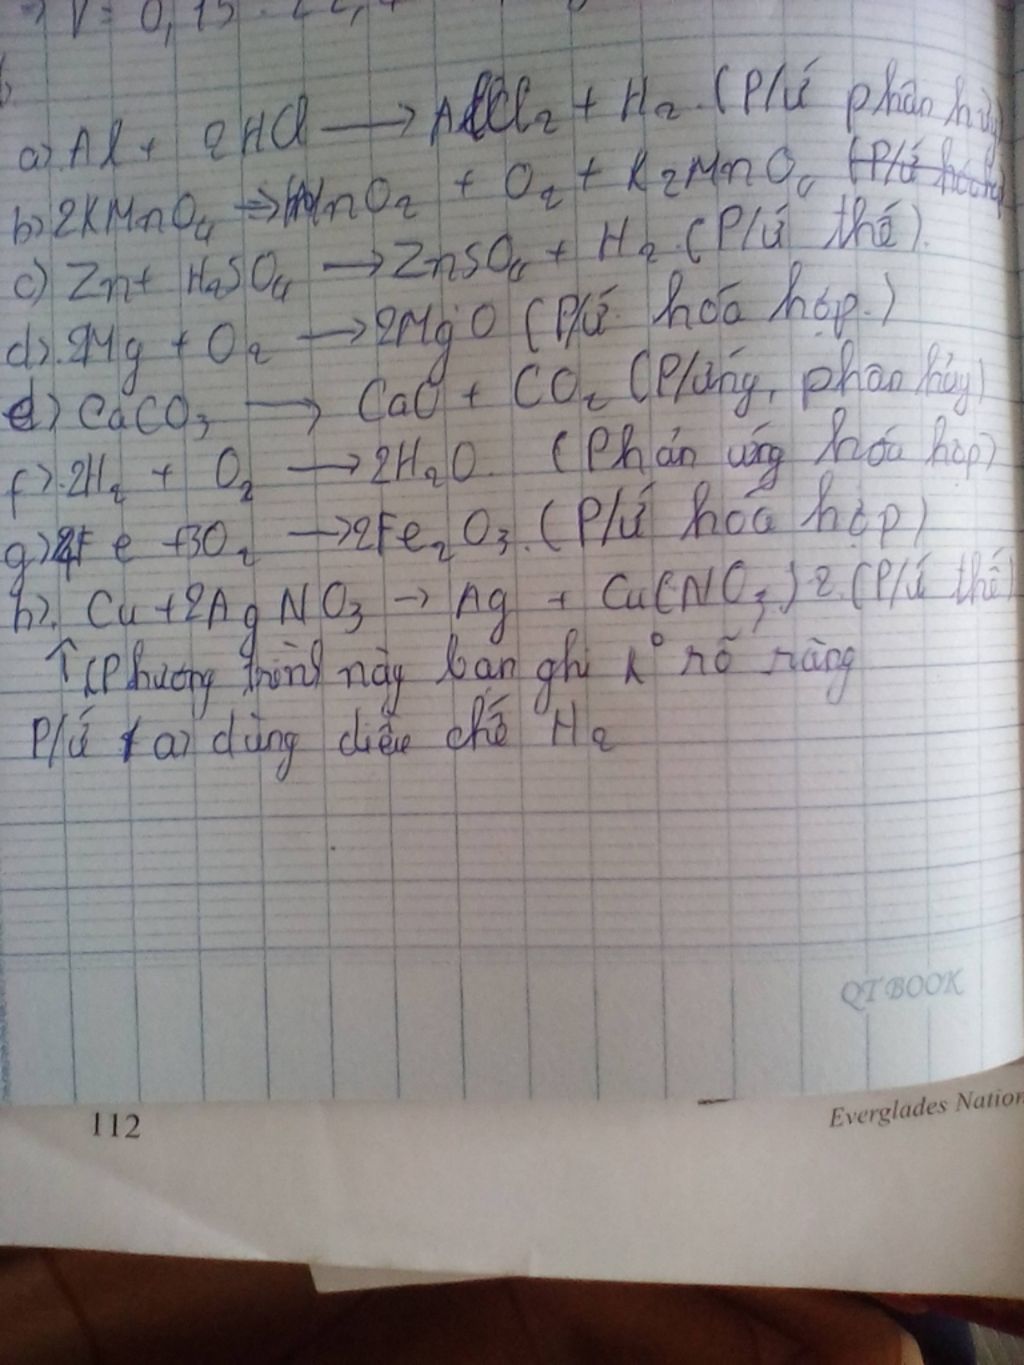 V = 0,15 . 22,4
a) Al + 2HCl → AlCl2 + H2 (P/ứ phân hủy
b) 2KMnO4 → MnO2 + O2 + K2MnO4 (P/ứ hóa hợp
c) Zn + H2SO4 → ZnSO4 + H2 (P/ứ thế).
d) 2Mg + O2 → 2MgO (P/ứ hóa hợp.)
e) CaCO3 → CaO + CO2 (P/ứng, phân hủy)
f) 2H2 + O2 → 2H2O. (Phản ứng hóa hợp)
g) 4Fe + 3O2 → 2Fe2O3. (P/ứ hóa hợp)
h). Cu + 2AgNO3 → Ag + Cu(NO3)2. (P/ứ thế)
↑ (Phương trình này bạn ghi k° rõ ràng
P/ứ a) dùng điều chế H2
QT BOOK
112
Everglades Nation